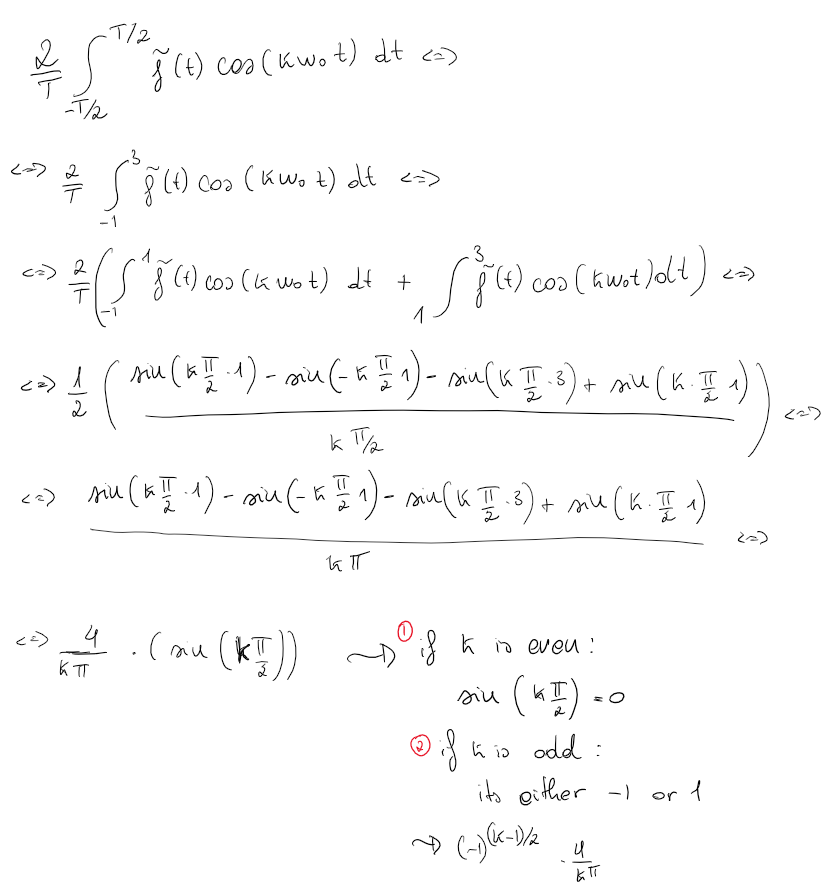 2/T ∫_{-T/2}^{T/2} f̃(t) cos(kω₀t) dt <=>
<=> 2/T ∫_{-1}^{3} f̃(t) cos(kω₀t) dt <=>
<=> 2/T (∫_{-1}^{1} f̃(t) cos(kω₀t) dt + ∫_{1}^{3} f̃(t) cos(kω₀t)dt) <=>
<=> 1/2 ( (sin(k π/2 · 1) - sin(-k π/2 1) - sin(k π/2 · 3) + sin(k · π/2 1)) / (k π/2) ) <=>
<=> (sin(k π/2 · 1) - sin(-k π/2 1) - sin(k π/2 · 3) + sin(k · π/2 1)) / (kπ) <=>
<=> 4/(kπ) · (sin(k π/2)) → ① if k is even:
sin(k π/2) = 0
② if k is odd:
its either -1 or 1
→ (-1)^{(k-1)/2} · 4/(kπ)